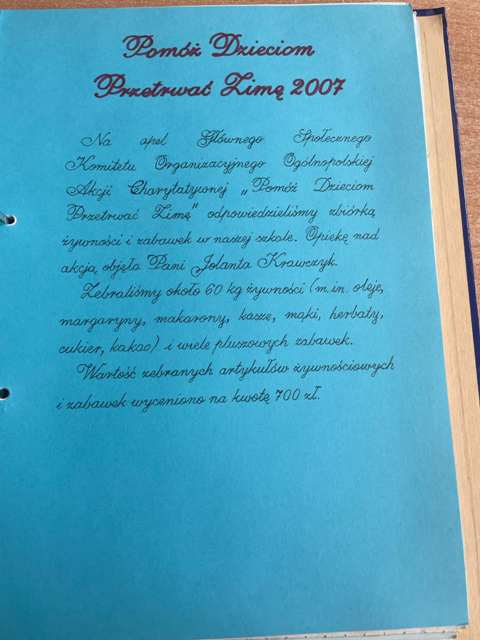 Pomóż Dzieciom
Przetrwać Zimę 2007
Na apel Głównego Społecznego
Komitetu Organizacyjnego Ogólnopolskiej
Akcji Charytatywnej „Pomóż Dzieciom
Przetrwać Zimę” odpowiedzieliśmy zbiórką
żywności i zabawek w naszej szkole. Opiekę nad
akcją objęła Pani Jolanta Krawczyk.
Zebraliśmy około 60 kg żywności (m.in. oleje,
margaryny, makarony, kasze, mąki, herbaty,
cukier, kakao) i wiele pluszowych zabawek.
Wartość zebranych artykułów żywnościowych
i zabawek wyceniono na kwotę 700 zł.